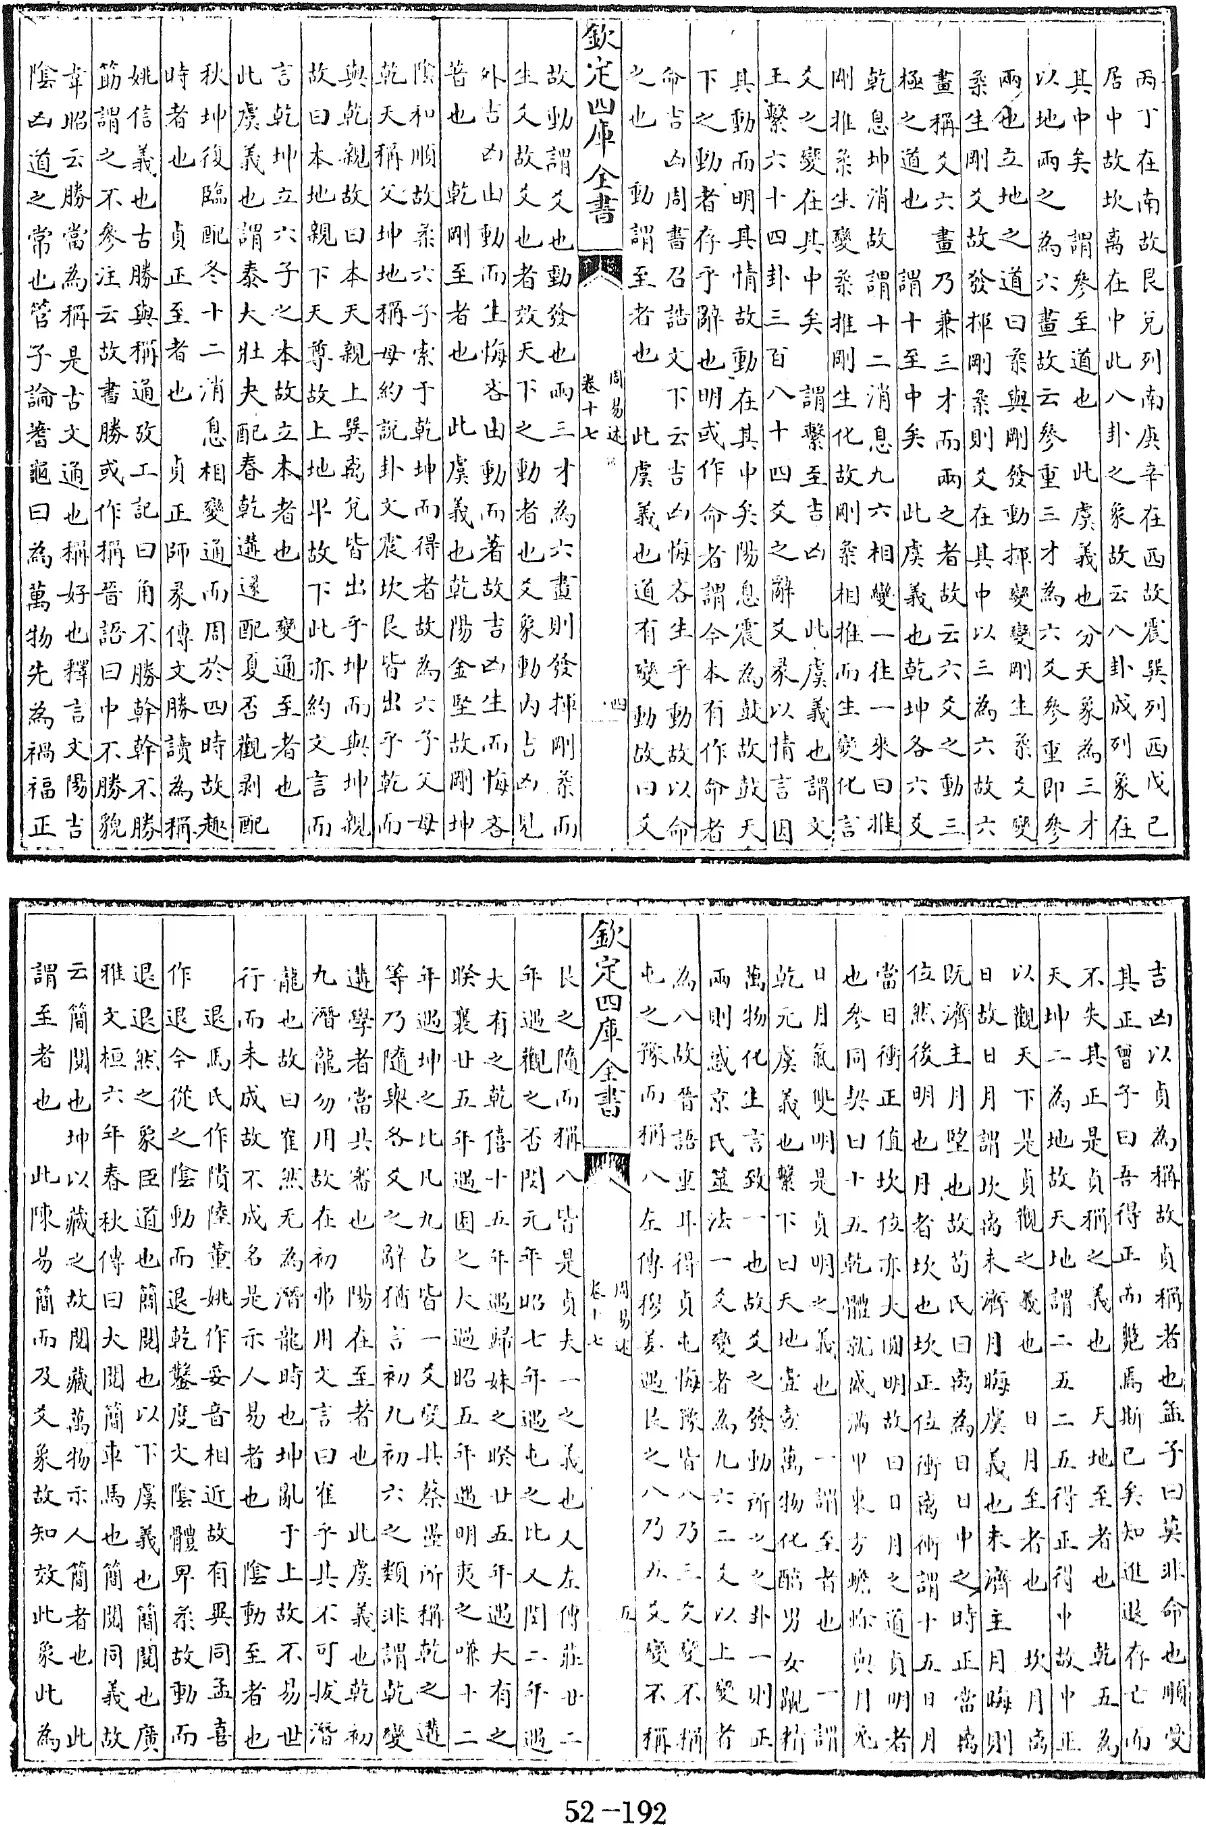 丙丁在南故艮兌列南庚辛在西故震巽列西戊己
居中故坎离在中此八卦之象故云八卦成列象在
其中矣　謂參至道也　此虞義也分天象為三才
以地兩之為六畫故云參重三才為六爻參重即參
兩也立地之道曰柔與剛發動揮變變剛生柔爻變
柔生剛爻故發揮剛柔則爻在其中以三為六故六
畫稱爻六畫乃兼三才而兩之者故云六爻之動三
極之道也　謂十至中矣　此虞義也乾坤各六爻
乾息坤消故謂十二消息九六相變一往一來曰推
剛推柔生變柔推剛生化故剛柔相推而生變化言
爻之變在其中矣　謂繫至吉凶　此虞義也謂文
王繫六十四卦三百八十四爻之辭爻彖以情言因
其動而明其情故動在其中矣陽息震為鼓故鼓天
下之動者存乎辭也明或作命者謂今本有作命者
命吉凶周書召誥文下云吉凶悔吝生乎動故以命
之也　動謂至者也　此虞義也道有變動故曰爻
欽定四庫全書
周易述
卷十七
四
故動謂爻也動發也兩三才為六畫則發揮剛柔而
生爻故爻也者效天下之動者也爻象動內吉凶見
外吉凶由動而生悔吝由動而著故吉凶生而悔吝
著也　乾剛至者也　此虞義也乾陽金堅故剛坤
陰和順故柔六子索于乾坤而得者故為六子父母
乾天稱父坤地稱母約說卦文震坎艮皆出乎乾而
與乾親故曰本天親上巽离兌皆出乎坤而與坤親
故曰本地親下天尊故上地卑故下此亦約文言而
言乾坤立六子之本故立本者也　變通至者也
此虞義也謂泰大壯夬配春乾遘遯配夏否觀剥配
秋坤復臨配冬十二消息相變通而周於四時故趣
時者也　貞正至者也　貞正師彖傳文勝讀為稱
姚信義也古勝與稱通攷工記曰角不勝幹幹不勝
筋謂之不參注云故書勝或作稱晉語曰中不勝貌
韋昭云勝當為稱是古文通也稱好也釋言文陽吉
陰凶道之常也管子論蓍龜曰為萬物先為禍福正
吉凶以貞為稱故貞稱者也孟子曰莫非命也順受
其正曾子曰吾得正而斃焉斯已矣知進退存亡而
不失其正是貞稱之義也　天地至者也　乾五為
天坤二為地故天地謂二五二五得正得中故中正
以觀天下是貞觀之義也　日月至者也　坎月离
日故日月謂坎离未濟月晦虞義也未濟主月晦則
既濟主月望也故荀氏曰离為日日中之時正當离
位然後明也月者坎也坎正位衝离衝謂十五日月
當日衝正值坎位亦大圓明故曰日月之道貞明者
也參同契曰十五乾體就盛滿甲東方蟾蜍與月兎
日月氣雙明是貞明之義也　一謂至者也　一謂
乾元虞義也繫下曰天地壹壺萬物化醇男女覯精
萬物化生言致一也故爻之發動所之之卦一則正
兩則惑京氏筮法一爻變者為九六二爻以上變者
為八故晉語重耳得貞屯悔豫皆八乃三爻變不稱
屯之豫而稱八左傳穆姜遇艮之八乃五爻變不稱
欽定四庫全書
周易述
卷十七
五
艮之隨而稱八皆是貞夫一之義也又左傳莊廿二
年遇觀之否閔元年昭七年遇屯之比又閔二年遇
大有之乾僖十五年遇歸妹之睽廿五年遇大有之
睽襄廿五年遇困之大過昭五年遇明夷之嗛十二
年遇坤之比凡九占皆一爻變其蔡墨所稱乾之遘
等乃隨舉各爻之辭猶言初九初六之類非謂乾變
遘學者當共審也　陽在至者也　此虞義也乾初
九潛龍勿用故在初弗用文言曰隺乎其不可拔潛
龍也故曰隺然无為潛龍時也坤亂于上故不易世
行而未成故不成名是示人易者也　陰動至者也
退馬氏作隤陸董姚作妥音相近故有異同孟喜
作退今從之陰動而退乾鑿度文陰體卑柔故動而
退退然之象臣道也簡閱也以下虞義也簡閱也廣
雅文桓六年春秋傳曰大閱簡車馬也簡閱同義故
云簡閱也坤以藏之故閱藏萬物示人簡者也　此
謂至者也　此陳易簡而及爻象故知效此象此為
52-192